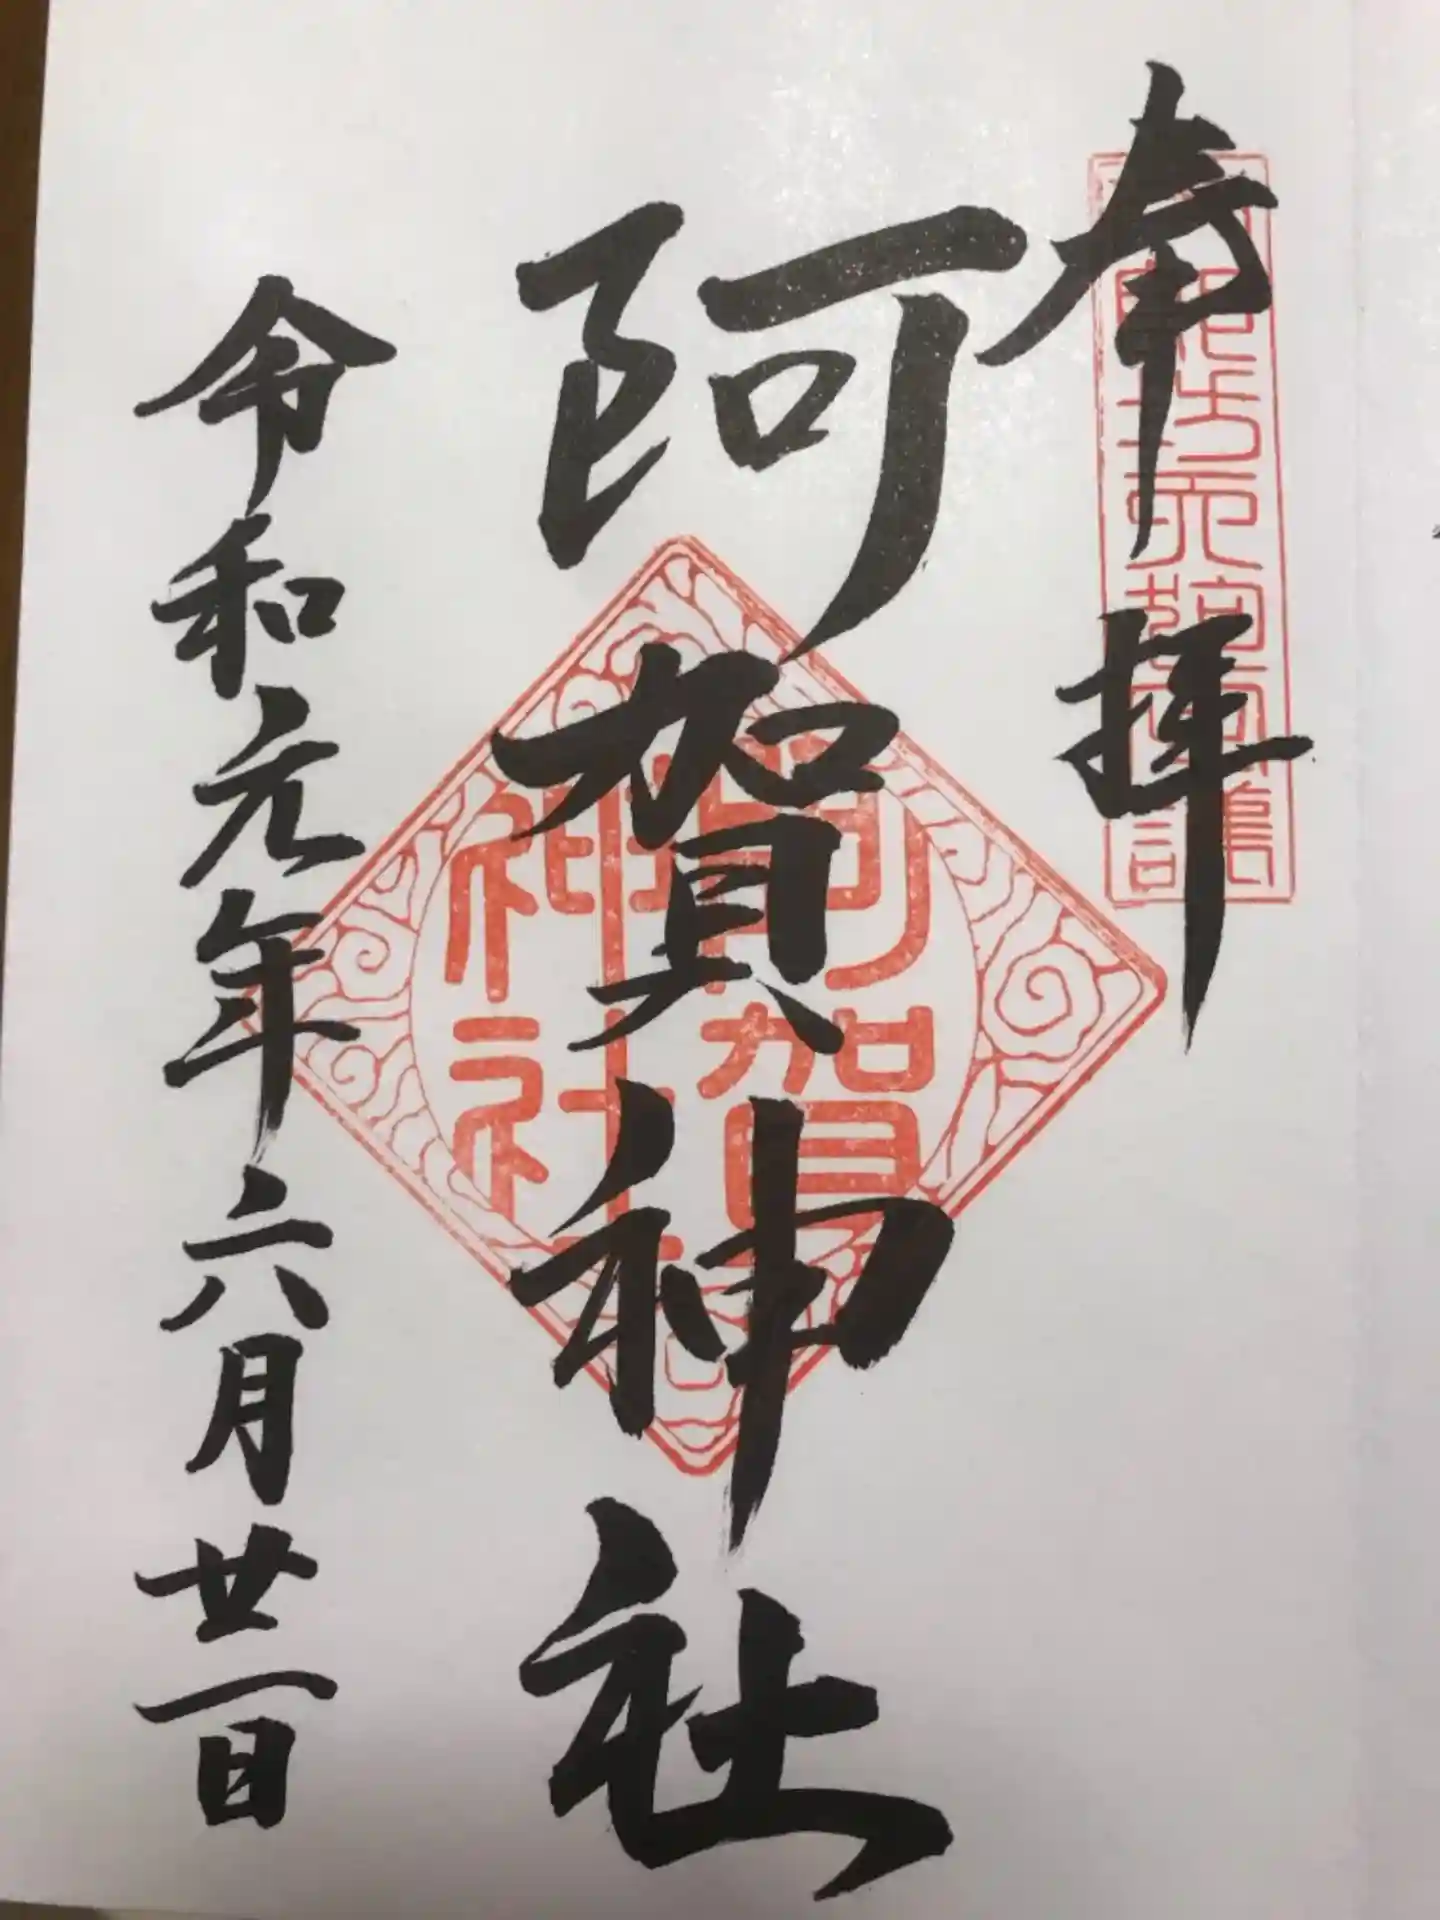 奉拝
阿賀神社
阿賀
神社
令和元年六月廿一日